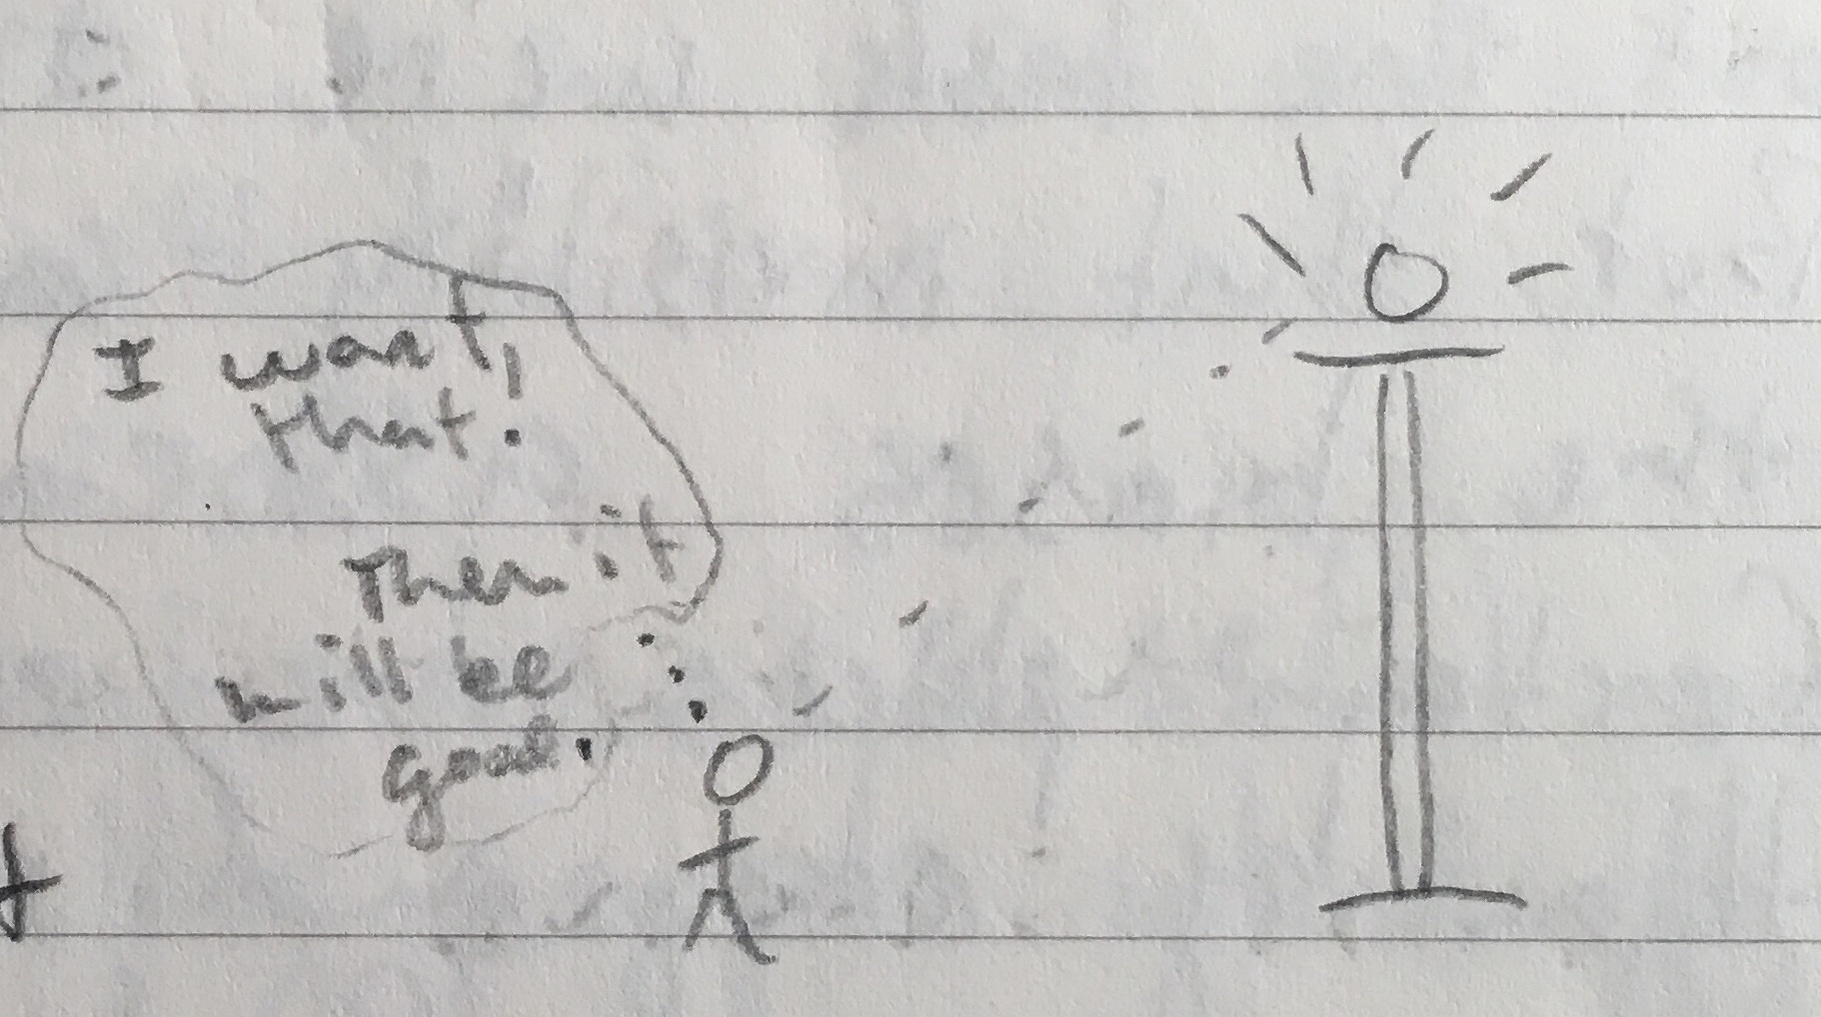 I want
that!
Then it
will be
good.